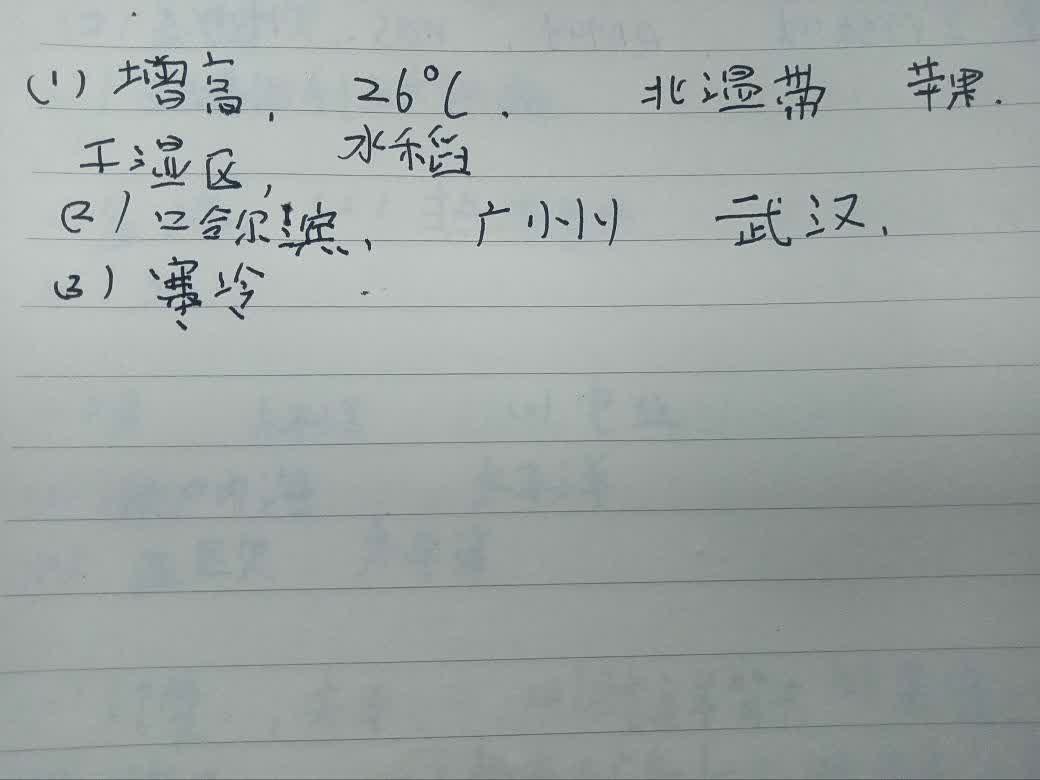 (1) 增高, 26°C. 北温带 苹果.
干湿区, 水稻
(2) 哈尔滨, 广州 武汉.
(3) 寒冷